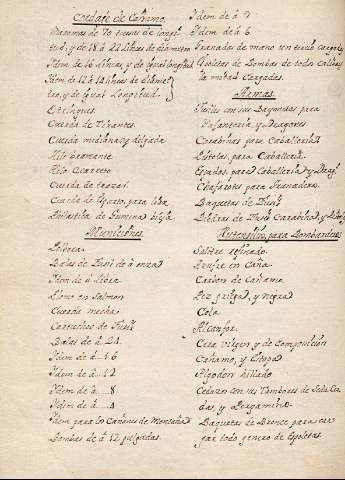 Cordaje de Cañamo.
Maromas de 70 brazas de longi
tud; y de 18 â 22 Lineas de diametro
Idem de 16 lineas, y de igual longitud
Idem de 12 â 14 lineas de diame
tro, y de igual Longitud
Estrinques
Cuerda de Tirantes.
Cuerda mediana y delgada
Hilo bramante
Hilo Cuarreto
Cuerda de
Cuerda de Esparto, para
de
Municiones.
Polvora.
Balas de Fusil de â onza
Idem de â libra
Plomo en Salmon
Cuerda mecha
Cartuches de Fusil
Balas de â 24.
Idem de â...16
Idem de â...12
Idem de â....8
Idem de â....4
Idem para los Cañones de Montaña
Bombas de â 12 pulgadas.
Idem de â 7.
Idem de â 6.
Granadas de mano con
Espoletas de Bombas de todos Calibres
Cargadas.
Armas.
Fusiles con sus Bayonetas para
Infanteria, y Dragones
Carabinas para Caballeria
Pistolas para Caballeria.
Espadas para Caballeria, y Drag
Chafarotes para Granaderos.
Baquetas de Fusil
Piedras de Fusil Carabina, y
Utensilios, para Bombardeos
Salitre refinado.
Azufre en Caña.
Carbon de Cañamo
Pez griega, y negra
Cola
Alcanfor.
Cera virgen y de composicion
Cañamo, y Estopa
Algodon hillado
Cedazos con sus Tambores de Seda Ca
bas, y Pergamino
Baquetas de Bronce para car
gar todo genero de Espoletas.